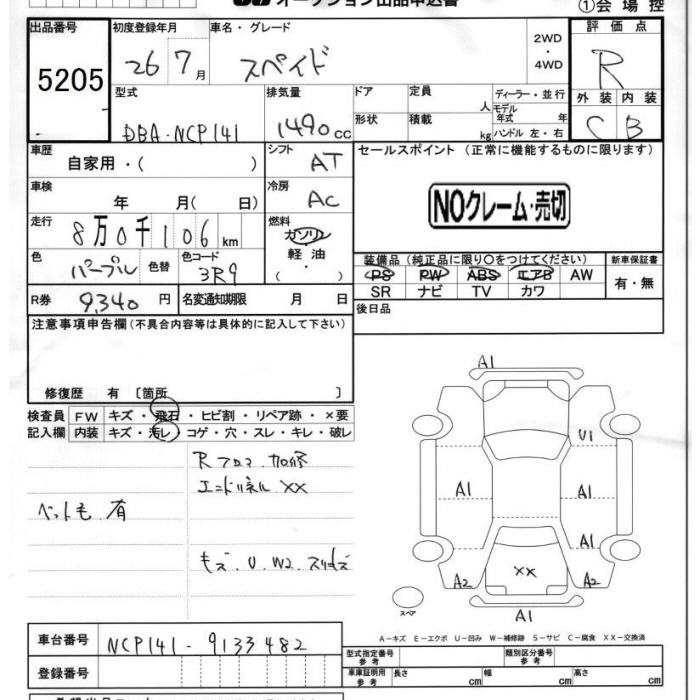 オークション出品申込書
①会場控
出品番号
5205
初度登録年月
26 7月
車名・グレード
スペイド
2WD
・
4WD
評価点
R
型式
DBA-NCP141
排気量
1490cc
ドア
定員
人
ディーラー・並行
モデル
年式 年
形状
積載
kg
ハンドル 左・右
外装 内装
C B
車歴
自家用・( )
シフト
AT
セールスポイント (正常に機能するものに限ります)
車検
年 月( 日)
冷房
AC
NOクレーム・売切
走行
8万0千106km
燃料
ガソリン
軽油
( ・ )
色
パープル
色替
色コード
3R9
装備品(純正品に限り○をつけてください)
新車保証書
PS PW ABS エアB AW
SR ナビ TV カワ
有・無
R券
9,340円
名変通知期限
月 日
後日品
注意事項申告欄(不具合内容等は具体的に記入して下さい)
修復歴 有 〔箇所 〕
検査員
記入欄
FW キズ・飛石・ヒビ割・リペア跡・×要
内装 キズ・汚レ・コゲ・穴・スレ・キレ・破レ
Rフロア 加修
エンドパネル XX
ペット毛 有
キズ.U.W2.スリキズ
A1
U1
A1
A1
A1
A2
XX
A2
A1
スペア
A-キズ E-エクボ U-凹み W-補修跡 S-サビ C-腐食 XX-交換済
車台番号
NCP141-9133482
登録番号
型式指定番号
参考
類別区分番号
参考
車庫証明用
参考
長さ
cm
幅
cm
高さ
cm